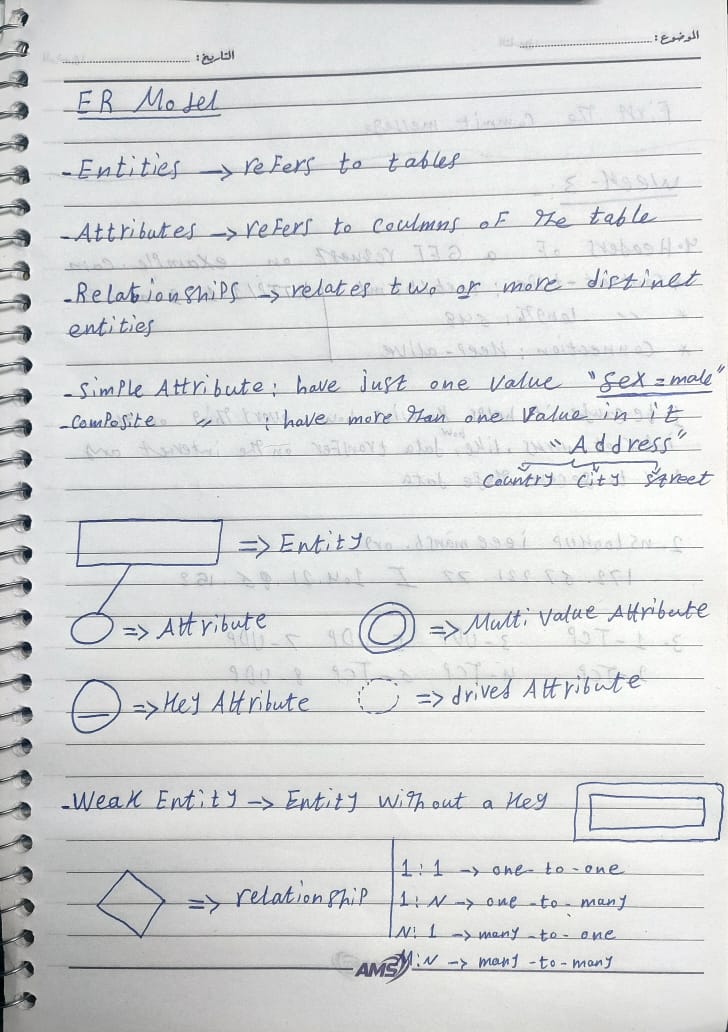 الموضوع:
التاريخ:
ER Model
- Entities -> refers to tables
- Attributes -> refers to coulmns of the table
- Relationships -> relates two or more distinct
entities
- Simple Attribute: have just one value "sex = male"
- Composite " : have more than one value in it
"Address"
Country City Street
=> Entity
=> Attribute => Multi Value Attribute
=> Key Attribute => drived Attribute
- Weak Entity -> Entity without a key
=> relationship
1:1 -> one-to-one
1:N -> one-to-many
N:1 -> many-to-one
M:N -> many-to-many
AMS